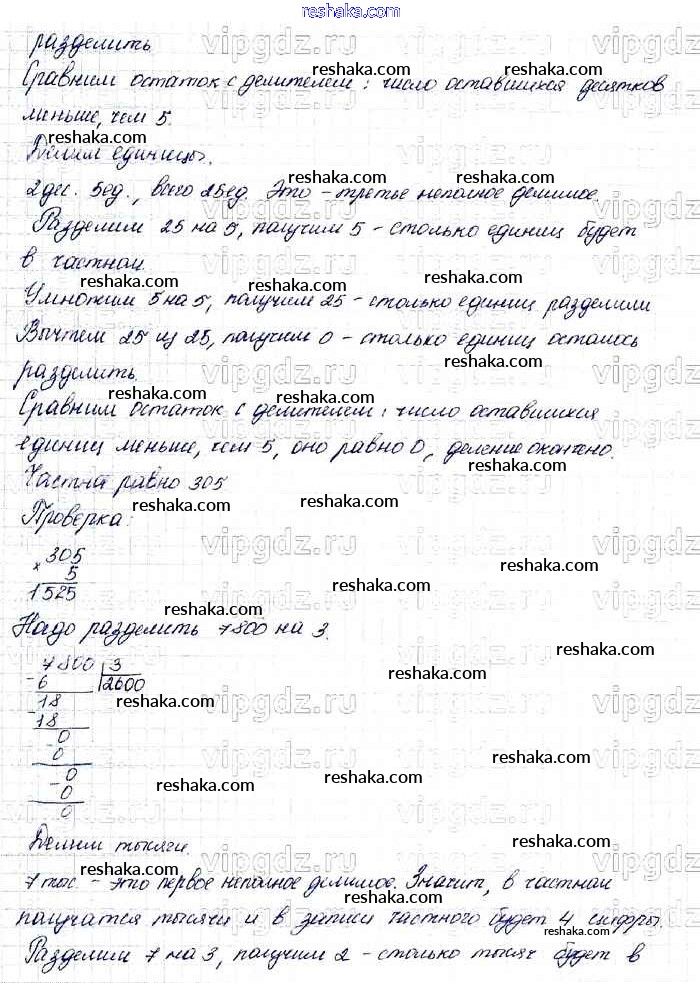 reshaka.com
разделить
Сравним остаток с делителем: число оставшихся десятков
меньше, чем 5.
Делим единицы.
2 дес. 5ед., всего 25ед. Это – третье неполное делимое.
Разделим 25 на 5, получим 5 – столько единиц будет
в частном.
Умножим 5 на 5, получим 25 – столько единиц разделили
Вычтем 25 из 25, получим 0 – столько единиц осталось
разделить.
Сравним остаток с делителем: число оставшихся
единиц меньше, чем 5, оно равно 0, деление окончено.
Частна равно 305
Проверка:
× 305
5
1525
Надо разделить 7800 на 3.
7800 3
- 6 2600
18
- 18
0
- 0
0
- 0
0
Делим тысячи.
7 тыс. – это первое неполное делимое. Значит, в частном
получатся тысячи и в записи частного будет 4 цифры.
Разделим 7 на 3, получим 2 – столько тысяч будет в
reshaka.com
vipgdz.ru